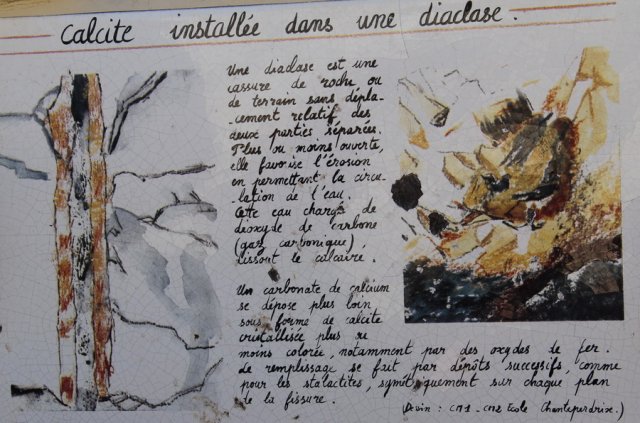 Calcite installée dans une diaclase.
Une diaclase est une
cassure de roche ou
de terrain sans dépla-
cement relatif des
deux parties séparées.
Plus ou moins ouverte,
elle favorise l'érosion
en permettant la circu-
lation de l'eau.
Cette eau chargée de
dioxyde de carbone
(gaz carbonique),
dissout le calcaire.
Un carbonate de calcium
se dépose plus loin
sous forme de calcite
cristallisée plus ou
moins colorée, notamment par des oxydes de fer.
Le remplissage se fait par dépôts successifs, comme
pour les stalactites, symétriquement sur chaque plan
de la fissure.
(Dessin : CM1-CM2 Ecole Chanteperdrix.)